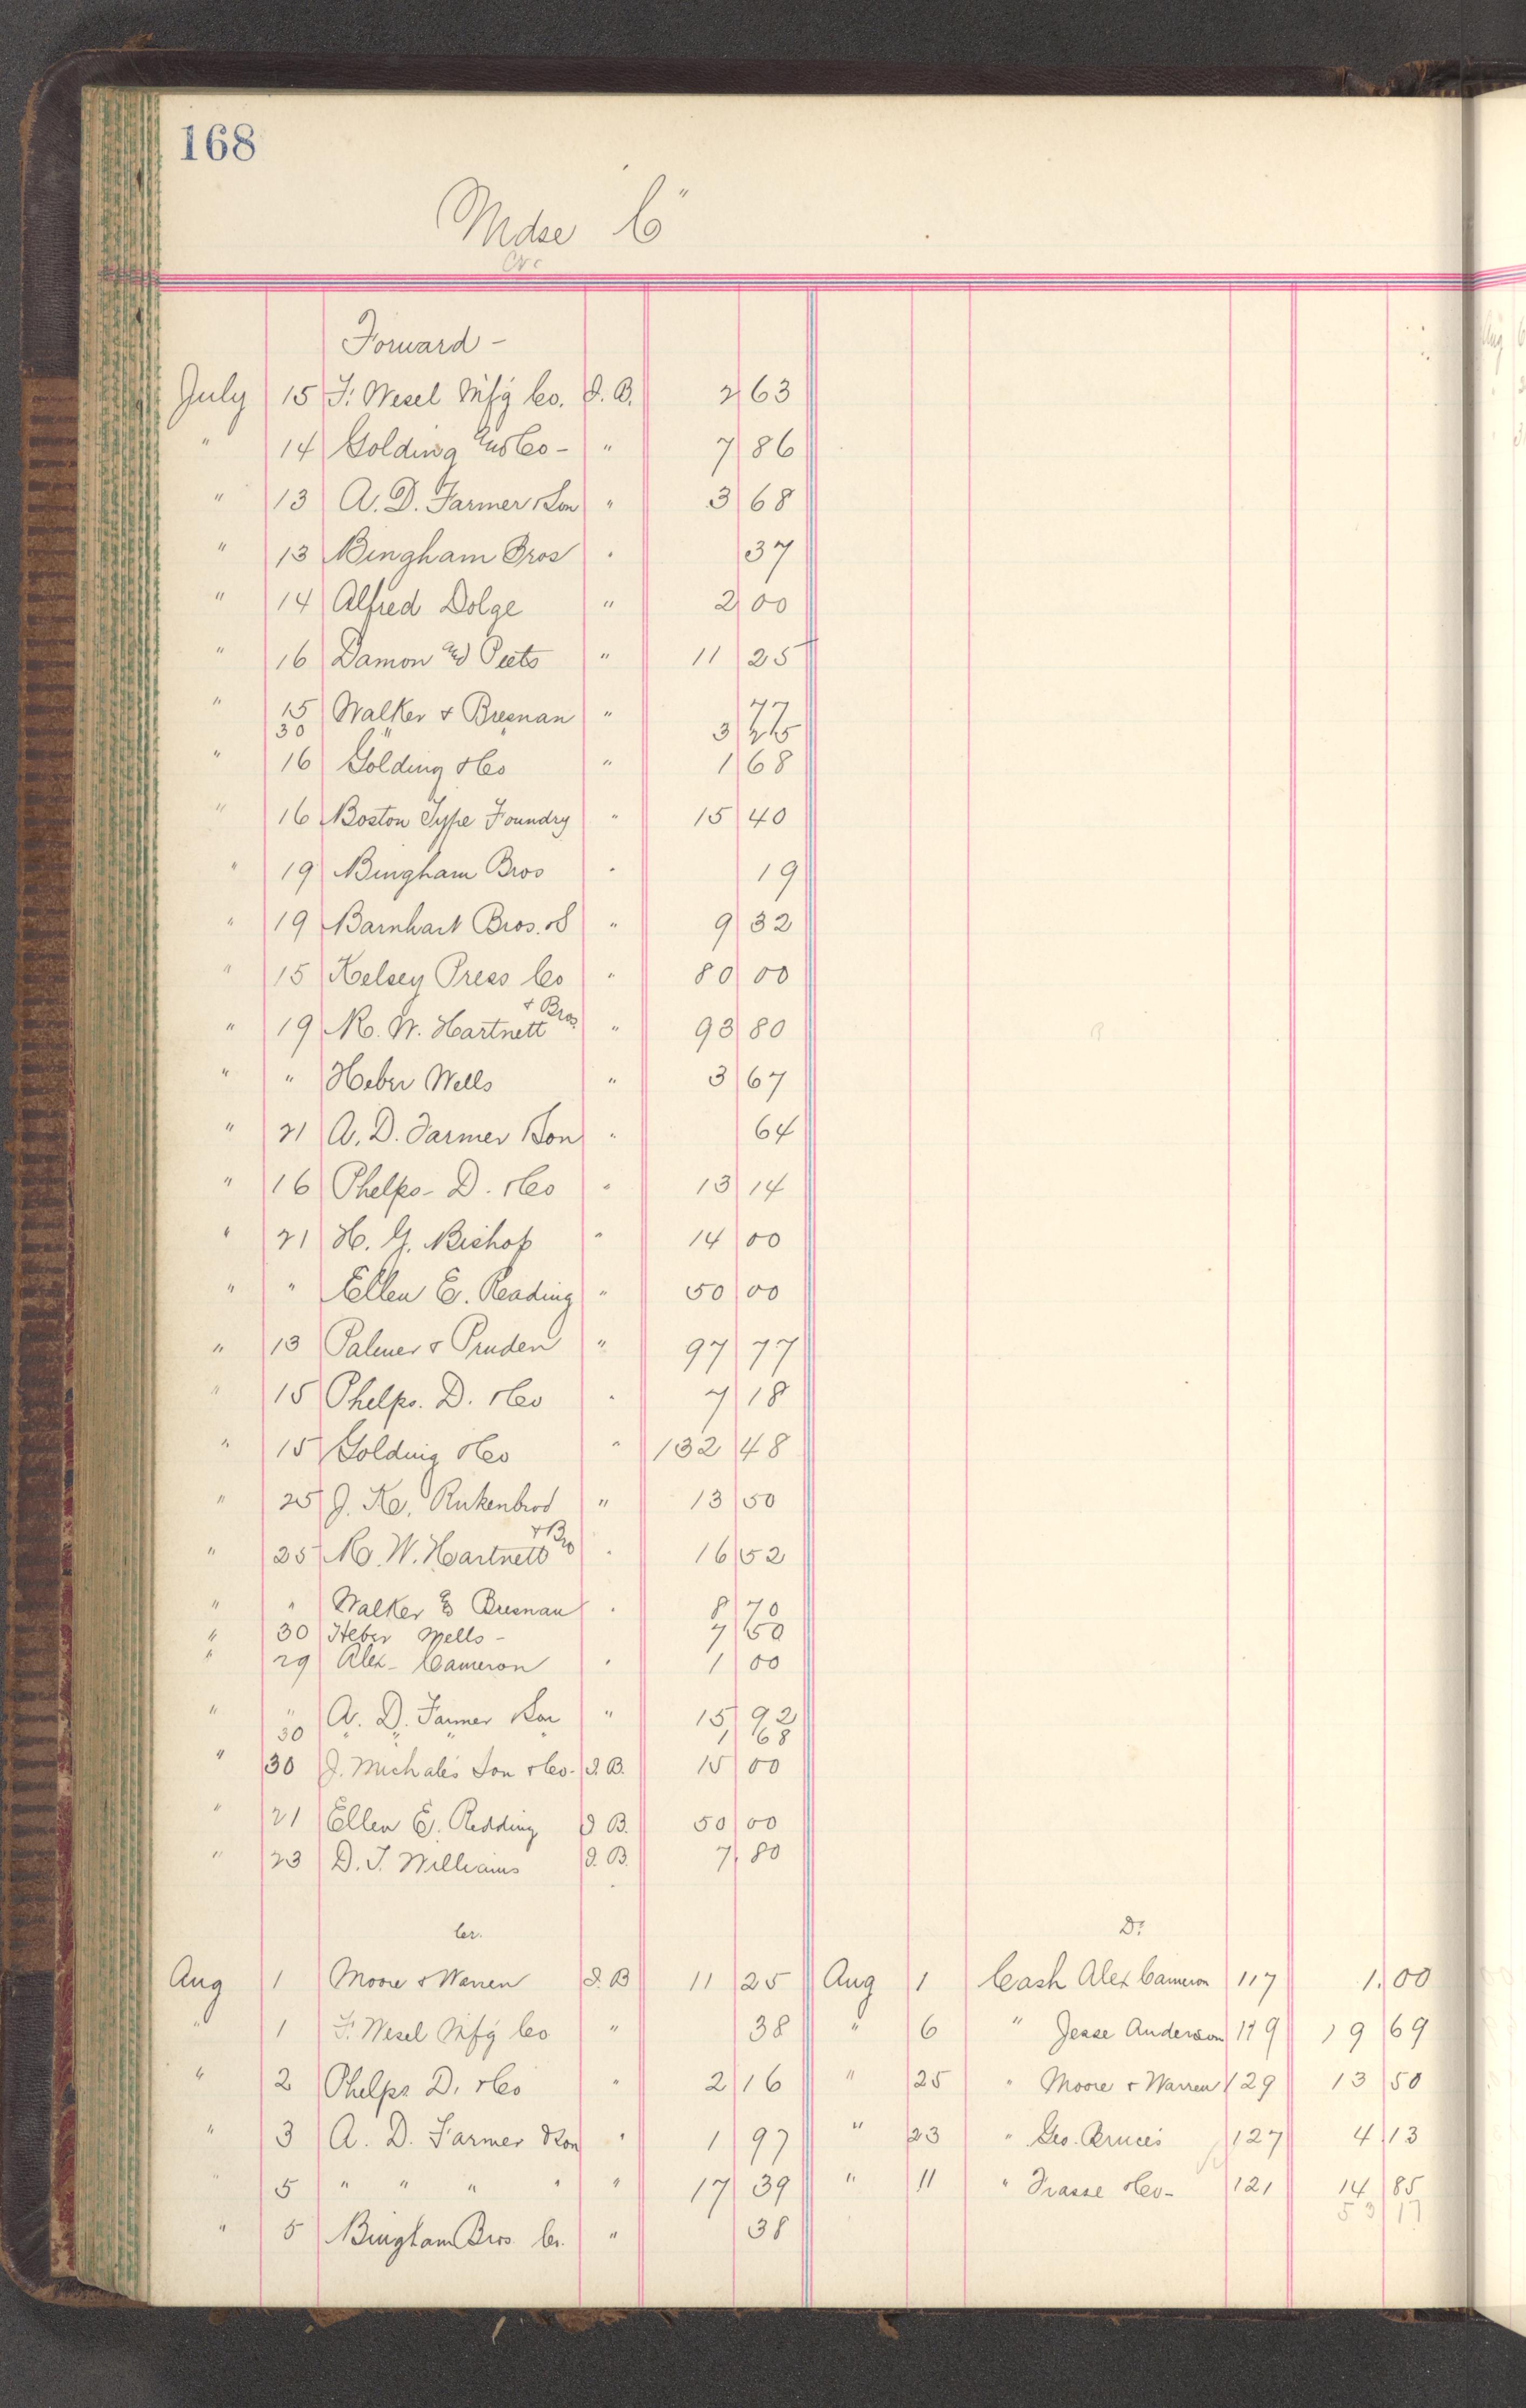 168
Mdse "C"
Cr
Forward -
July 15 F. Wesel Mf'g Co. I. B. 2 63
" 14 Golding and Co - " 7 86
" 13 A. D. Farmer & Son " 3 68
" 13 Bingham Bros " 37
" 14 Alfred Dolge " 2 00
" 16 Damon and Peets " 11 25
" 15 Walker & Bresnan " 77
30 " " 3
" 16 Golding & Co " 1 68
" 16 Boston Type Foundry " 15 40
" 19 Bingham Bros " 19
" 19 Barnhart Bros. & S " 9 32
" 15 Kelsey Press Co " 80 00
" 19 R. W. Hartnett & Bros " 93 80
" " Heber Wells " 3 67
" 21 A. D. Farmer & Son " 64
" 16 Phelps - D. & Co " 13 14
" 21 H. G. Bishop " 14 00
" " Ellen E. Reading " 50 00
" 13 Palmer & Pruden " 97 77
" 15 Phelps. D. & Co " 7 18
" 15 Golding & Co " 132 48
" 25 J. K. Rukenbrod " 13 50
" 25 R. W. Hartnett & Bro " 16 52
" " Walker & Bresnan " 8 70
" 30 Heber Wells - 7 50
" 29 Alex - Cameron " 1 00
" " A. D. Farmer & Son " 15 92
30 " " " " 1 68
" 30 J. Michales Son & Co. I. B. 15 00
" 21 Ellen E. Redding I B. 50 00
" 23 D. J. Williams I. B. 7 80
Cr. Dr
Aug 1 Moore & Warren I. B 11 25 Aug 1 Cash Alex Cameron 117 1.00
" 1 F. Wesel Mf'g Co " 38 " 6 " Jesse Anderson 119 19 69
" 2 Phelps D. & Co " 2 16 " 25 " Moore & Warren 129 13 50
" 3 A. D. Farmer & Son " 1 97 " 23 " Geo. Bruce's 127 4 13
" 5 " " " " " 17 39 " 11 " Frasse & Co - 121 14 85
53 17
" 5 Bingham Bros. Cr. " 38